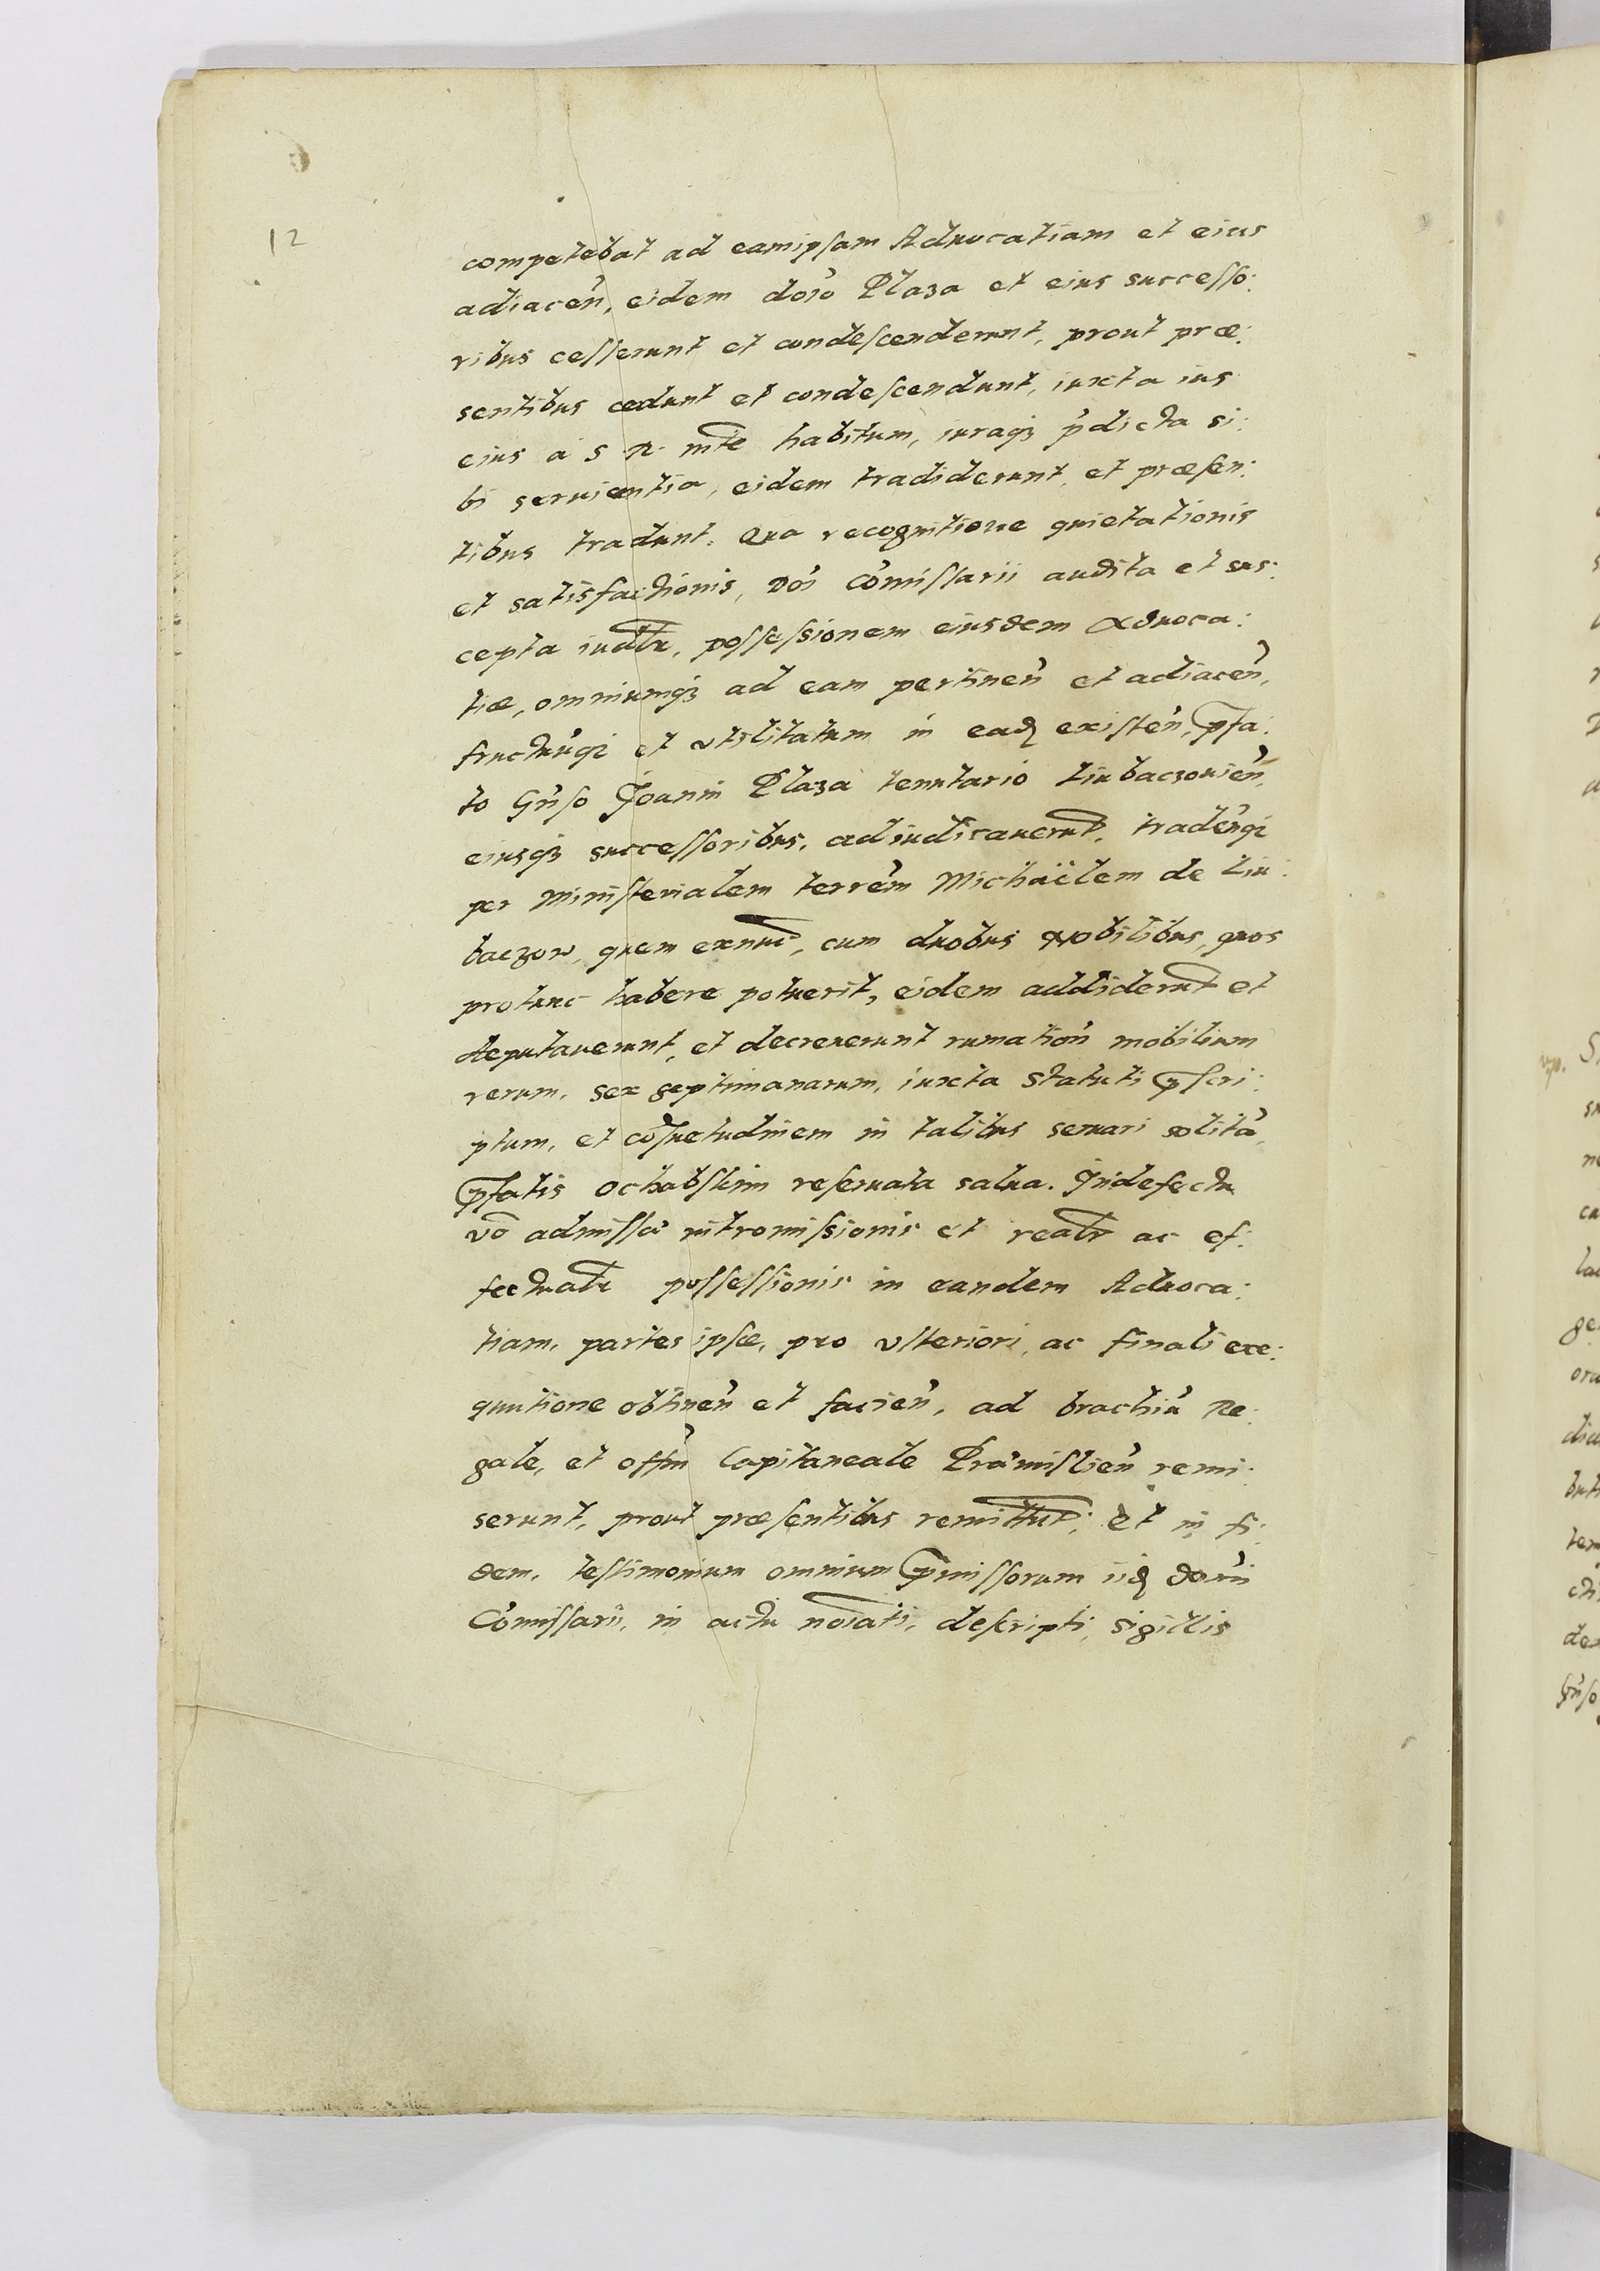 12
competebat ad eamipsam Aduocatiam et eius
adiacen̄, eidem dōīo Plaza et eius successo:
ribus cesserunt et condescenderunt, prout præ:
sentibus cedunt et condescendunt, iuxta ius
eius a S R. mte habitum, iuraqꝫ p̄dicta si:
bi seruientia, eidem tradiderunt, et præsen:
tibus tradunt. Qua recognitione quietationis
et satisfactionis, Dōī Com̄issarii audita et sus:
cepta iudlr, possessionem eiusdem Aduoca:
tiæ, omniumqꝫ ad eam pertinen̄ et adiacen̄,
fructuūqꝫ et vtilitatum in eadꝫ existen̄, pfa:
to Gn̄so Joanni Plaza tenutario Liubaczouien̄,
eiusqꝫ successoribus, adiudicauerunt, traden̄qꝫ
per Ministerialem terrēm Michaëlem de Liu:
baczow, quem exnuc, cum duobus Nobilibus, quos
protunc habere potuerit, eidem addiderunt et
deputauerunt, et decreuerunt rumation̄ mobilium
rerum, sex septimanarum, iuxta Statuti pscri:
ptum, et cōsuetudinem in talibus seruari solitā,
pfatis Ochabskim reseruata salua. In defectu
vō admissæ intromissionis et realr ac ef:
fectualr possessionis in eandem Aduoca:
tiam, partes ipsæ, pro vlteriori, ac finali exe:
quutione obtinen̄ et facien̄, ad brachiū Re:
gale, et offm̄ Capitaneale Præmislien̄ remi:
serunt, prout præsentibus remittut; Et in fi:
dem, testimonium omnium pmissorum iidꝫ dōnī
Com̄issarii, in actu noīati, descripti, sigillis